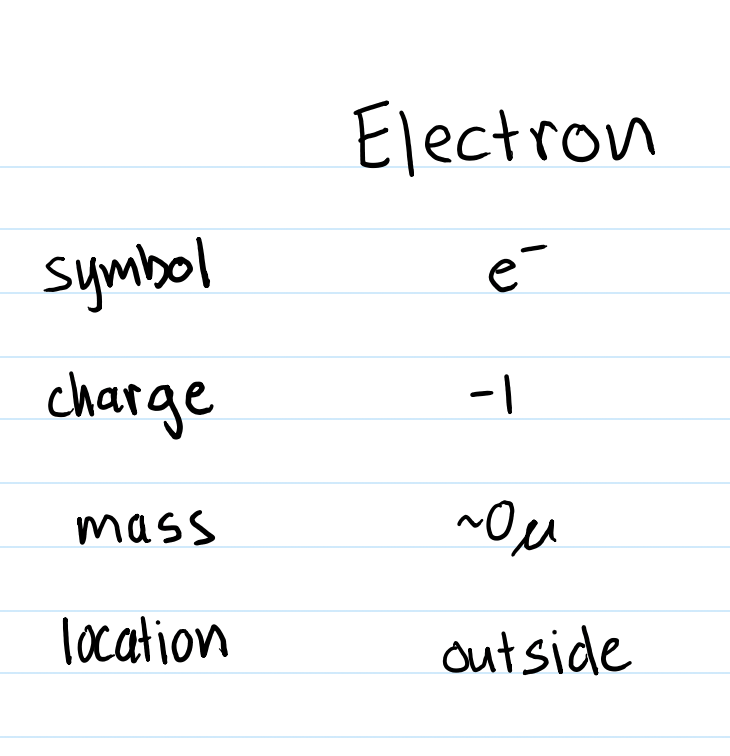 Electron
symbol e⁻
charge -1
mass ~0μ
location outside